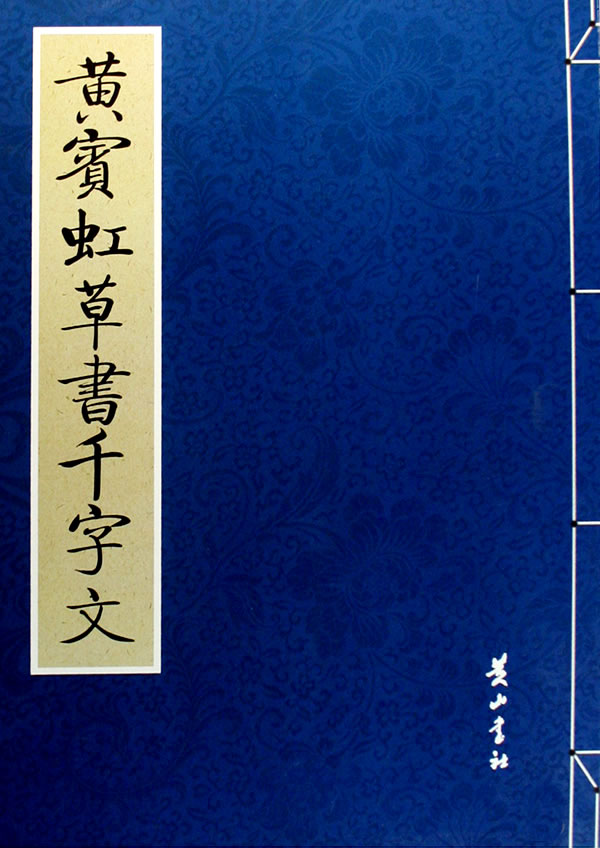 黄賓虹草書千字文
黄山书社